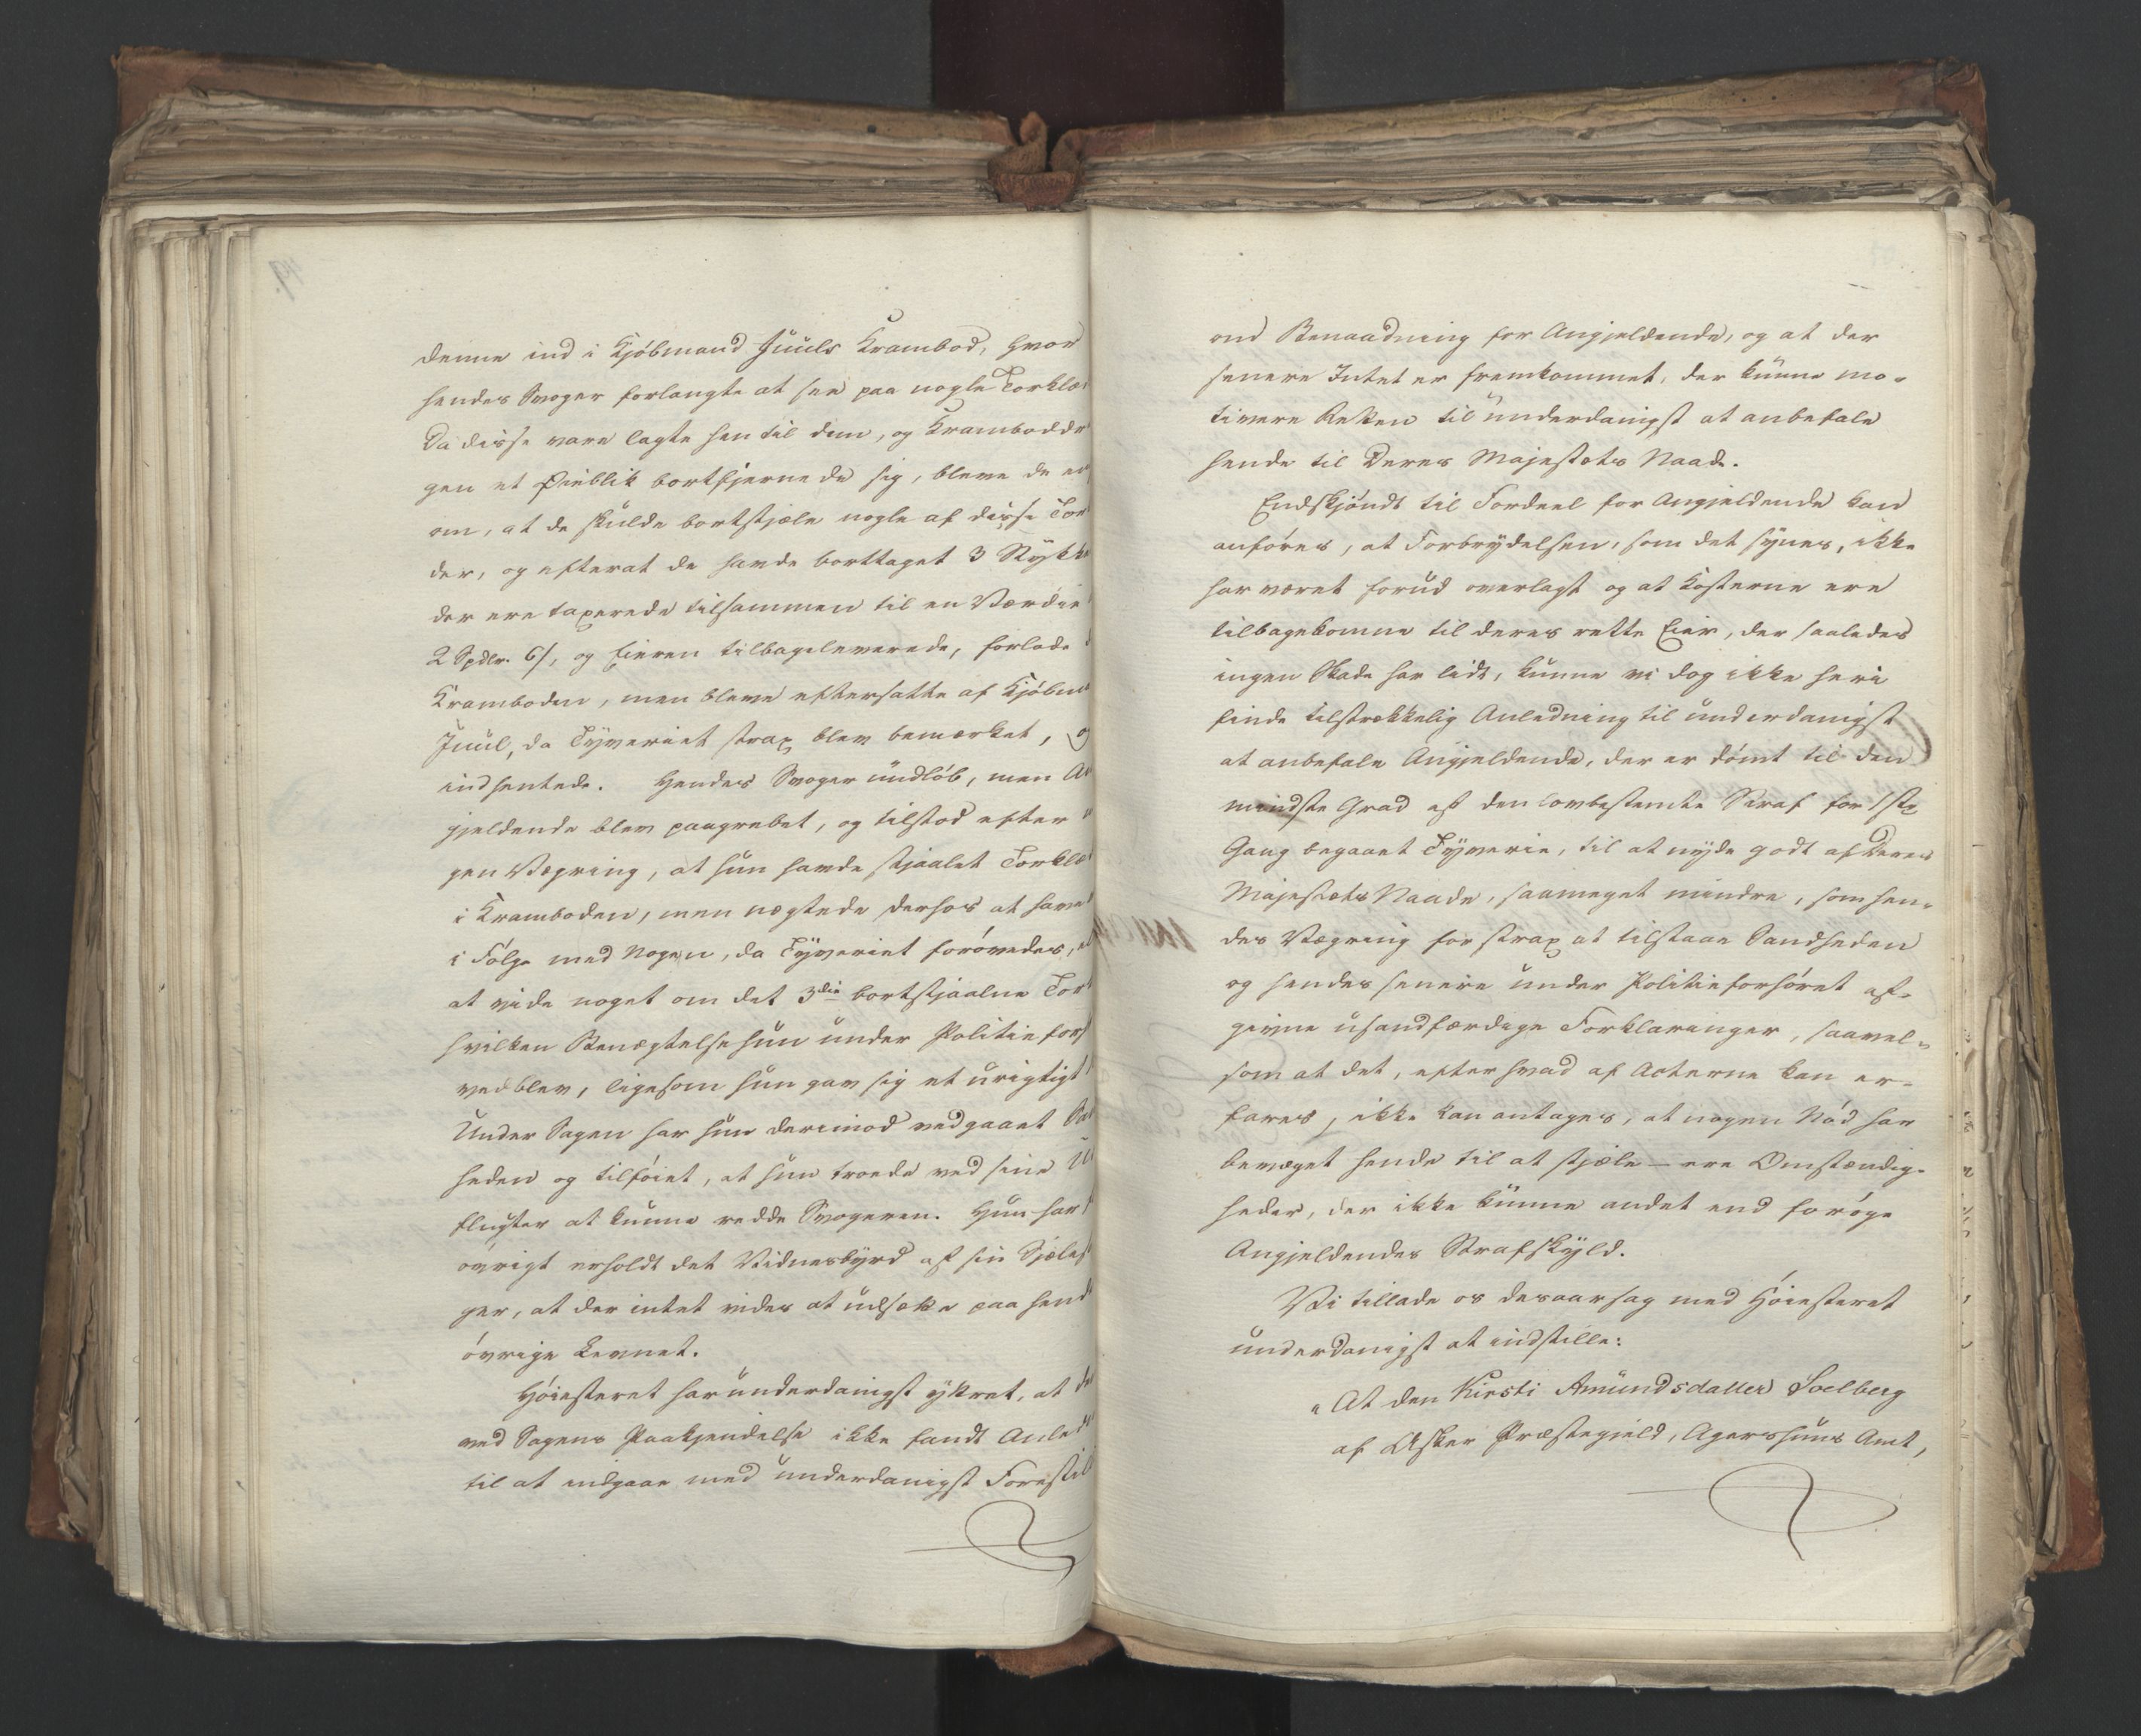 denne ind i Kjöbmand Juuls Krambod, hvor
hendes Svoger forlangte at see paa nogle Torklæ
Da disse vare lagte hen til dem, og Kramboddr
gen et Øieblik bortfjernede sig, bleve de en
om, at de skulde bortstjæle nogle af disse Tor
der, og efterat de havde borttaget 3 Stykk
der ere taxerede tilsammen til en Værdie
2 Spdlr. 6/, og Eieren tilbageleverede, forlode
Kramboden, men bleve eftersatte af Kjöbm
Juul, da Tyveriet strax blev bemærket, og
indhentede. Hendes Svoger undlöb, men An
gjeldende blev paagrebet, og tilstod efter
gen Vægring, at hun havde stjaalet Torklæ
i Kramboden, men nægtede derhos at have
i Fölge med Nogen, da Tyveriet forövedes,
at vide noget om det 3die bortstjaalne Tor
hvilken Benægtelse hun under Politieforh
vedblev, ligesom hun gav sig et urigtigt
Under Sagen har hun derimod vedgaaet San
heden og tilföiet, at hun troede ved sine U
flugter at kunne redde Svogeren. Hun har
övrigt erholdt det Vidnesbyrd af sin Sjæles
ger, at der intet vides at udsætte paa hend
övrige Levnet.
Höiesteret har underdanigst yttret, at de
ved Sagens Paakjendelse ikke fandt Anled
til at indgaae med underdanigst Forestil
om Benaadning for Angjeldende, og at der
senere Intet er fremkommet, der kunne mo-
tivere Retten til underdanigst at anbefale
hende til Deres Majestæts Naade.
Endskjöndt til Fordeel for Angjeldende kan
anföres, at Forbrydelsen, som det synes, ikke
har været forud overlagt og at Kosterne ere
tilbagekomne til deres rette Eier, der saaledes
ingen Skade har lidt, kunne vi dog ikke heri
finde tilstrækkelig Anledning til underdanigst
at anbefale Angjeldende, der er dömt til den
mindste Grad af den lovbestemte Straf for 1ste
Gang begaaet Tyverie, til at nyde godt af Deres
Majestæts Naade, saameget mindre, som hen-
des Vægring for strax at tilstaae Sandheden
og hendes senere under Politieforhöret af-
givne usandfærdige Forklaringer, saavel-
som at det, efter hvad af Acterne kan er-
fares, ikke kan antages, at nogen Nöd har
bevæget hende til at stjæle – ere Omstændig-
heder, der ikke kunne andet end foröge
Angjeldendes Strafskyld.
Vi tillade os desaarsag med Höiesteret
underdanigst at indstille:
"At den Kirsti Amundsdatter Soelberg
af Asker Præstegjeld, Agershuus Amt,